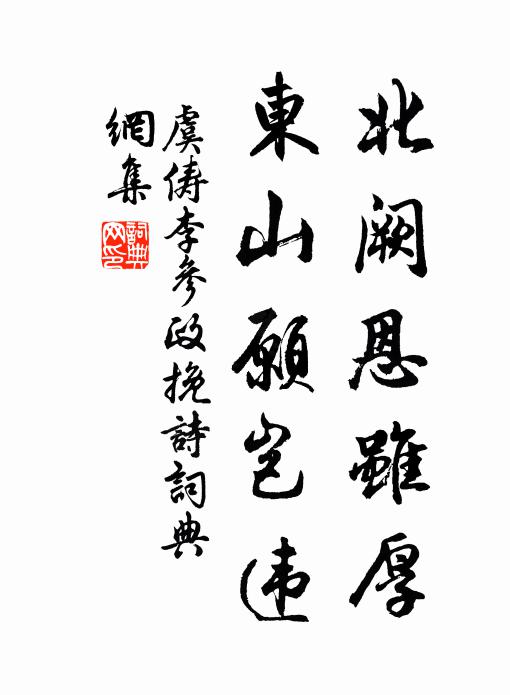 北阙恩雖厚
東山願豈违
虞儔李參政挽詩詞典
網集
詞典网印